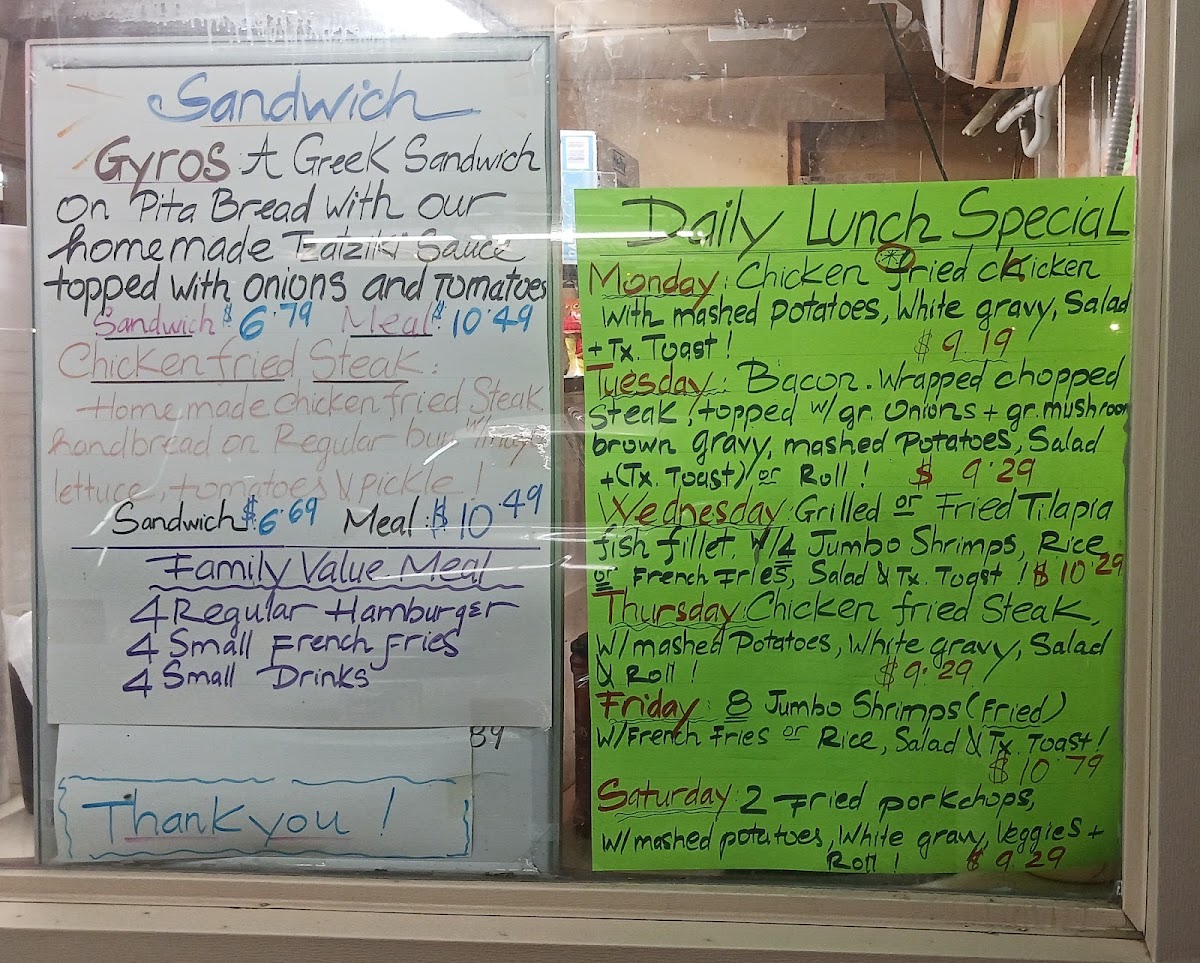 Sandwich
Gyros: A Greek Sandwich
on Pita Bread with our
homemade Tzatziki Sauce
topped with onions and Tomatoes
Sandwich $6.79 Meal $10.49
Chicken fried Steak:
Home made chicken fried Steak
handbread on Regular bun W/mayo
lettuce, tomatoes & pickle!
Sandwich $6.69 Meal: $10.49
Family Value Meal
4 Regular Hamburger
4 Small French Fries
4 Small Drinks
89
Thank you!
Daily Lunch Special
Monday: Chicken fried chicken
with mashed potatoes, White gravy, Salad
+ Tx. Toast! $9.19
Tuesday: Bacon. Wrapped chopped
Steak! topped w/ gr. Onions + gr. mushroom
brown gravy, mashed Potatoes, Salad
+ (Tx. Toast) or Roll! $9.29
Wednesday: Grilled or Fried Tilapia
fish fillet, W/4 Jumbo Shrimps, Rice
or French Fries, Salad & Tx. Toast! $10.29
Thursday: Chicken fried Steak,
W/mashed Potatoes, White gravy, Salad
& Roll! $9.29
Friday: 8 Jumbo Shrimps (Fried)
W/French Fries or Rice, Salad & Tx. Toast!
$10.79
Saturday: 2 Fried porkchops,
W/mashed potatoes, White gravy, Veggies +
Roll! $9.29